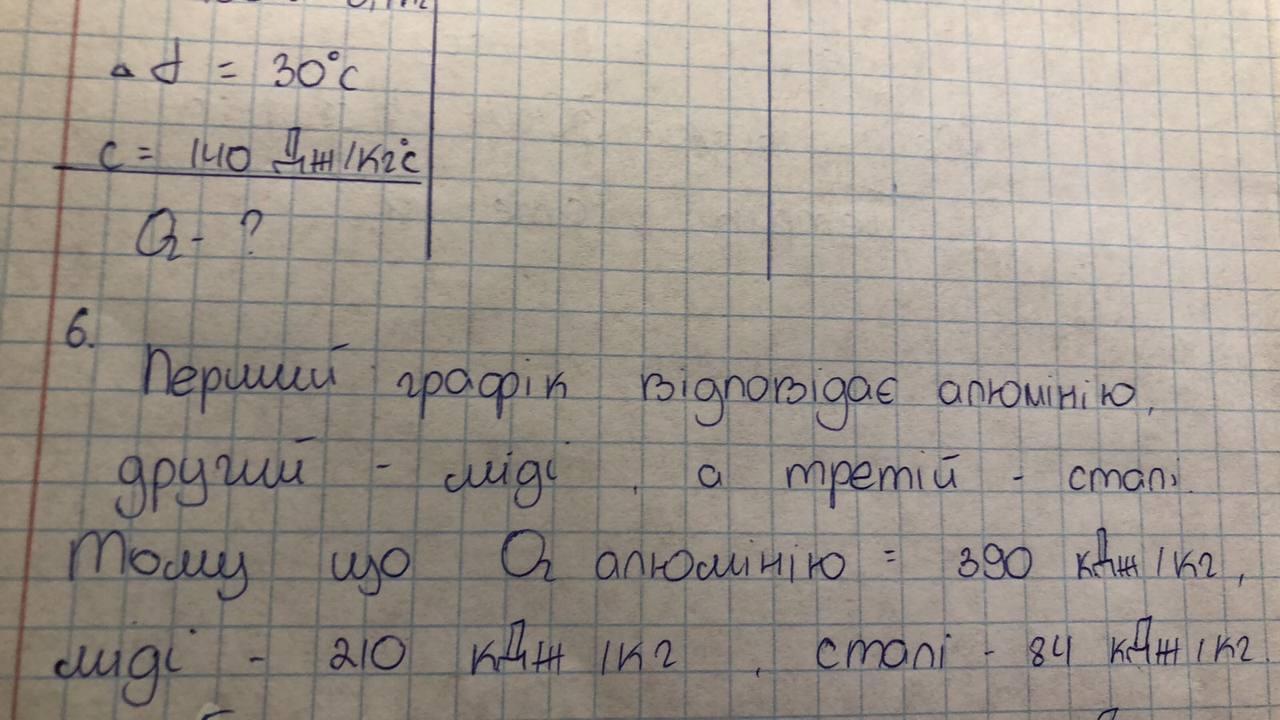 Δt = 30°C
c = 140 Дж/кг°C
Q - ?
6.
Перший графік відповідає алюмінію,
другий - міді, а третій - сталі.
Тому що Q алюмінію = 390 кДж/кг,
міді - 210 кДж/кг, сталі - 84 кДж/кг.